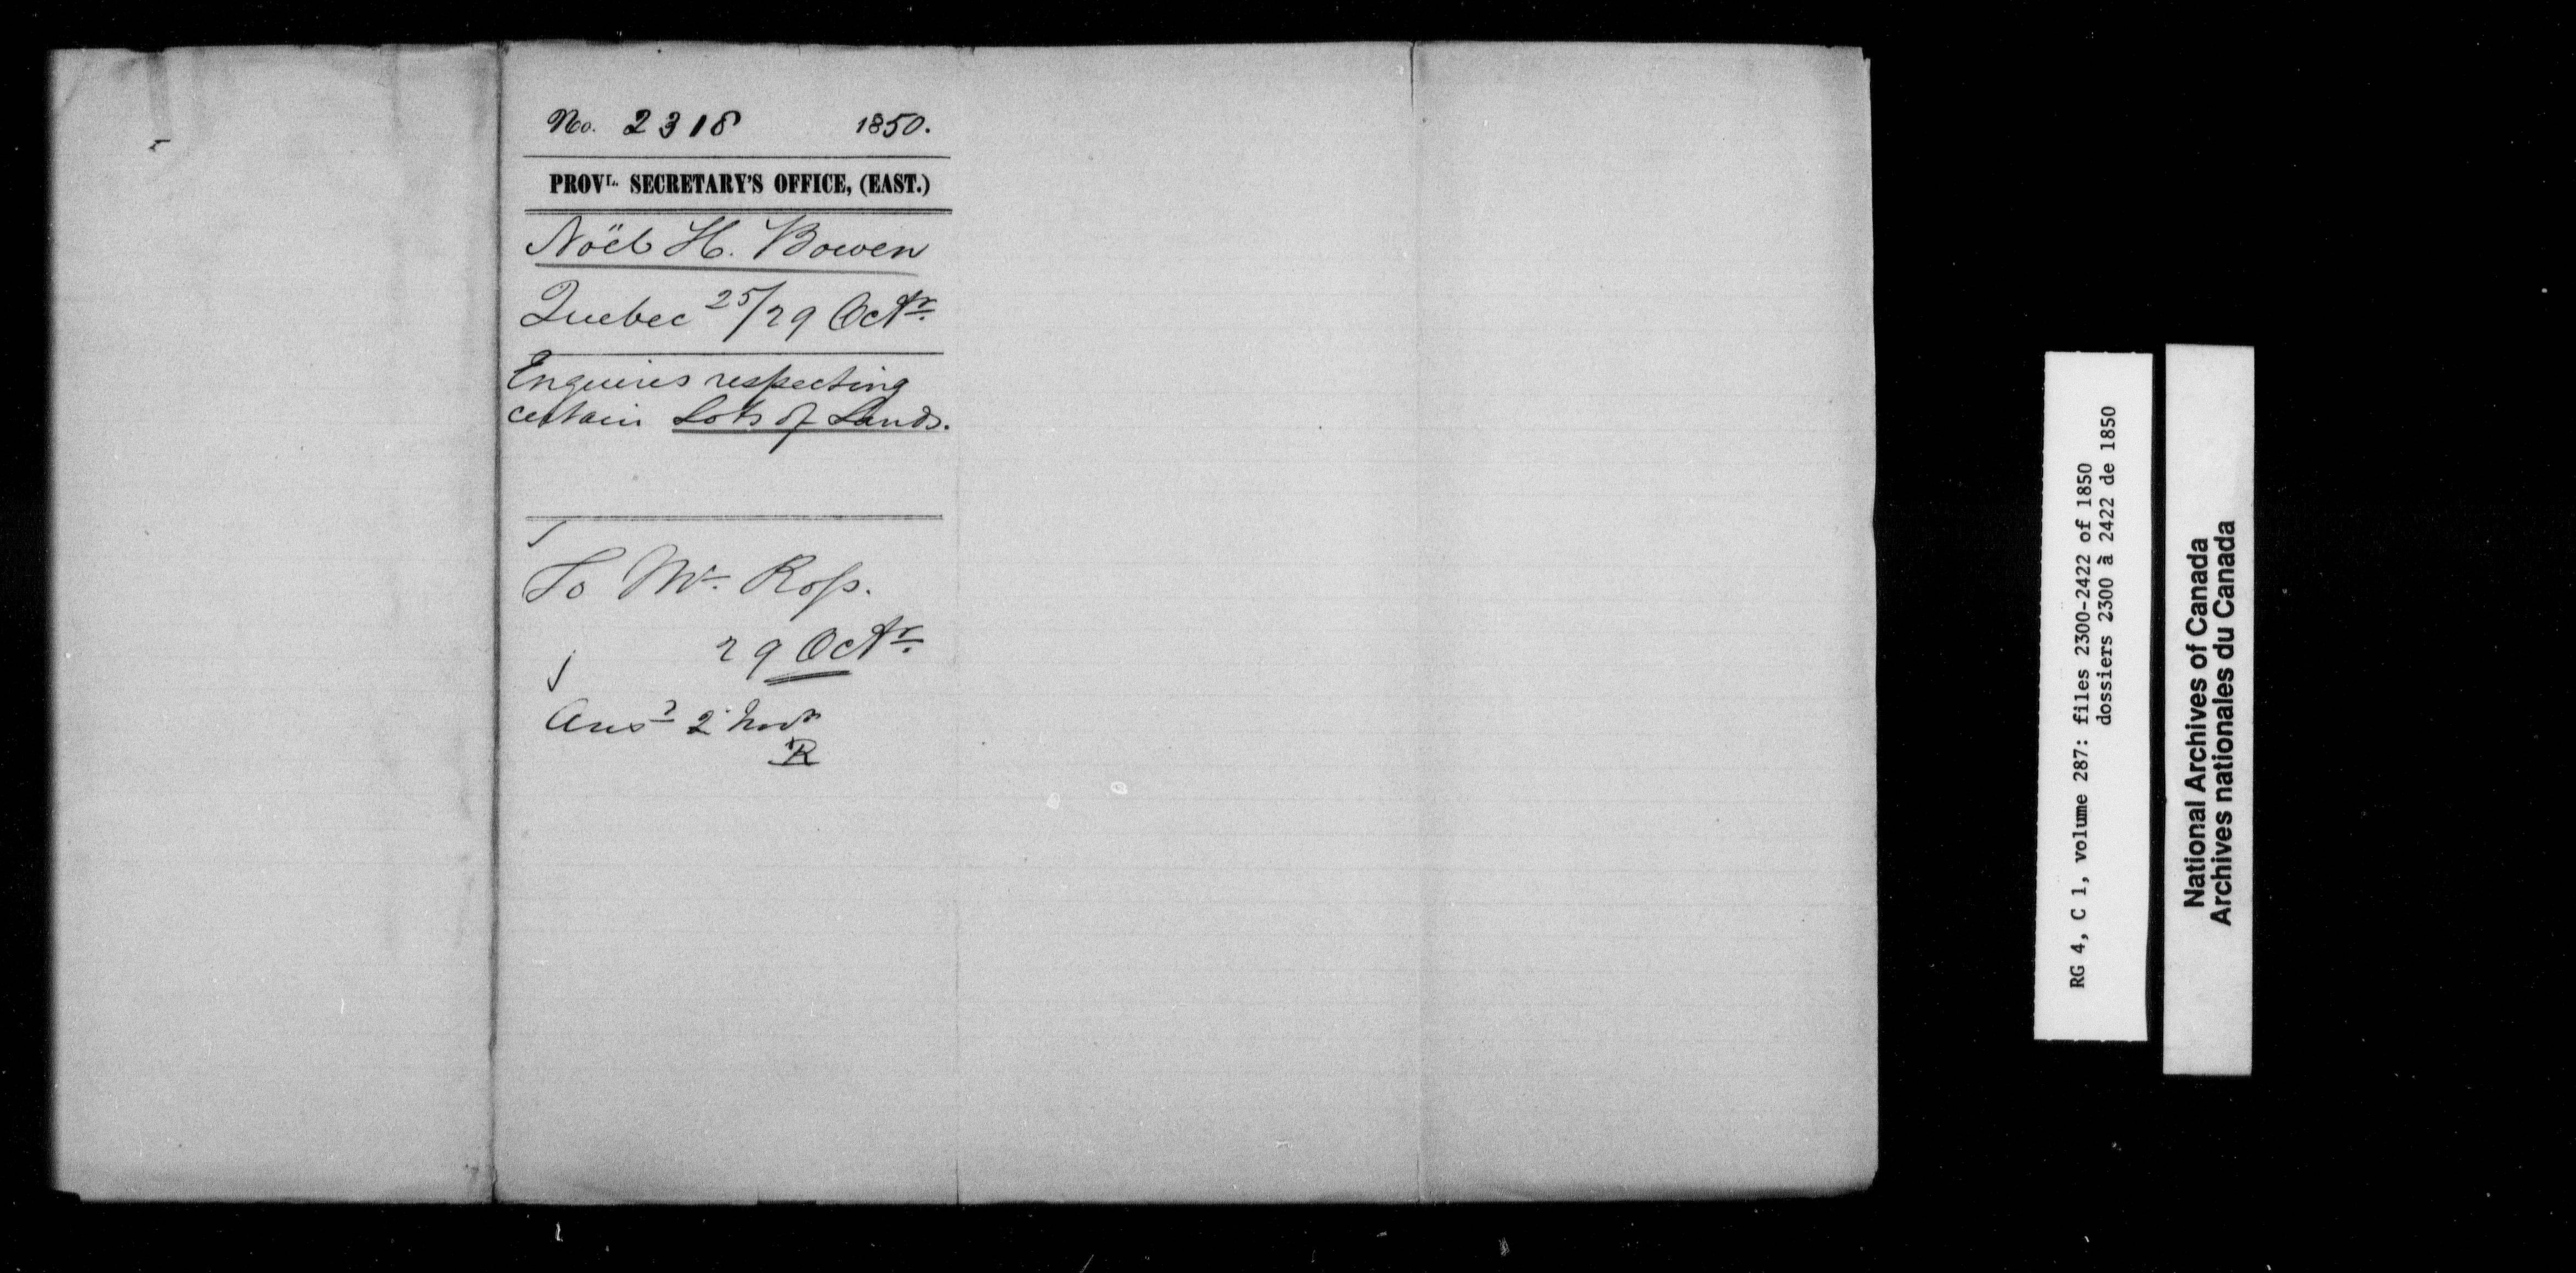 No. 2318 1850.
PROVL. SECRETARY'S OFFICE, (EAST.)
Noël H. Bowen
Quebec 25/29 Octr.
Enquires respecting
certain Lots of Lands.
To Mr. Ross.
29 Octr.
Ansd 2 Novr
R
RG 4, C 1, volume 287: files 2300-2422 of 1850
dossiers 2300 à 2422 de 1850
National Archives of Canada
Archives nationales du Canada